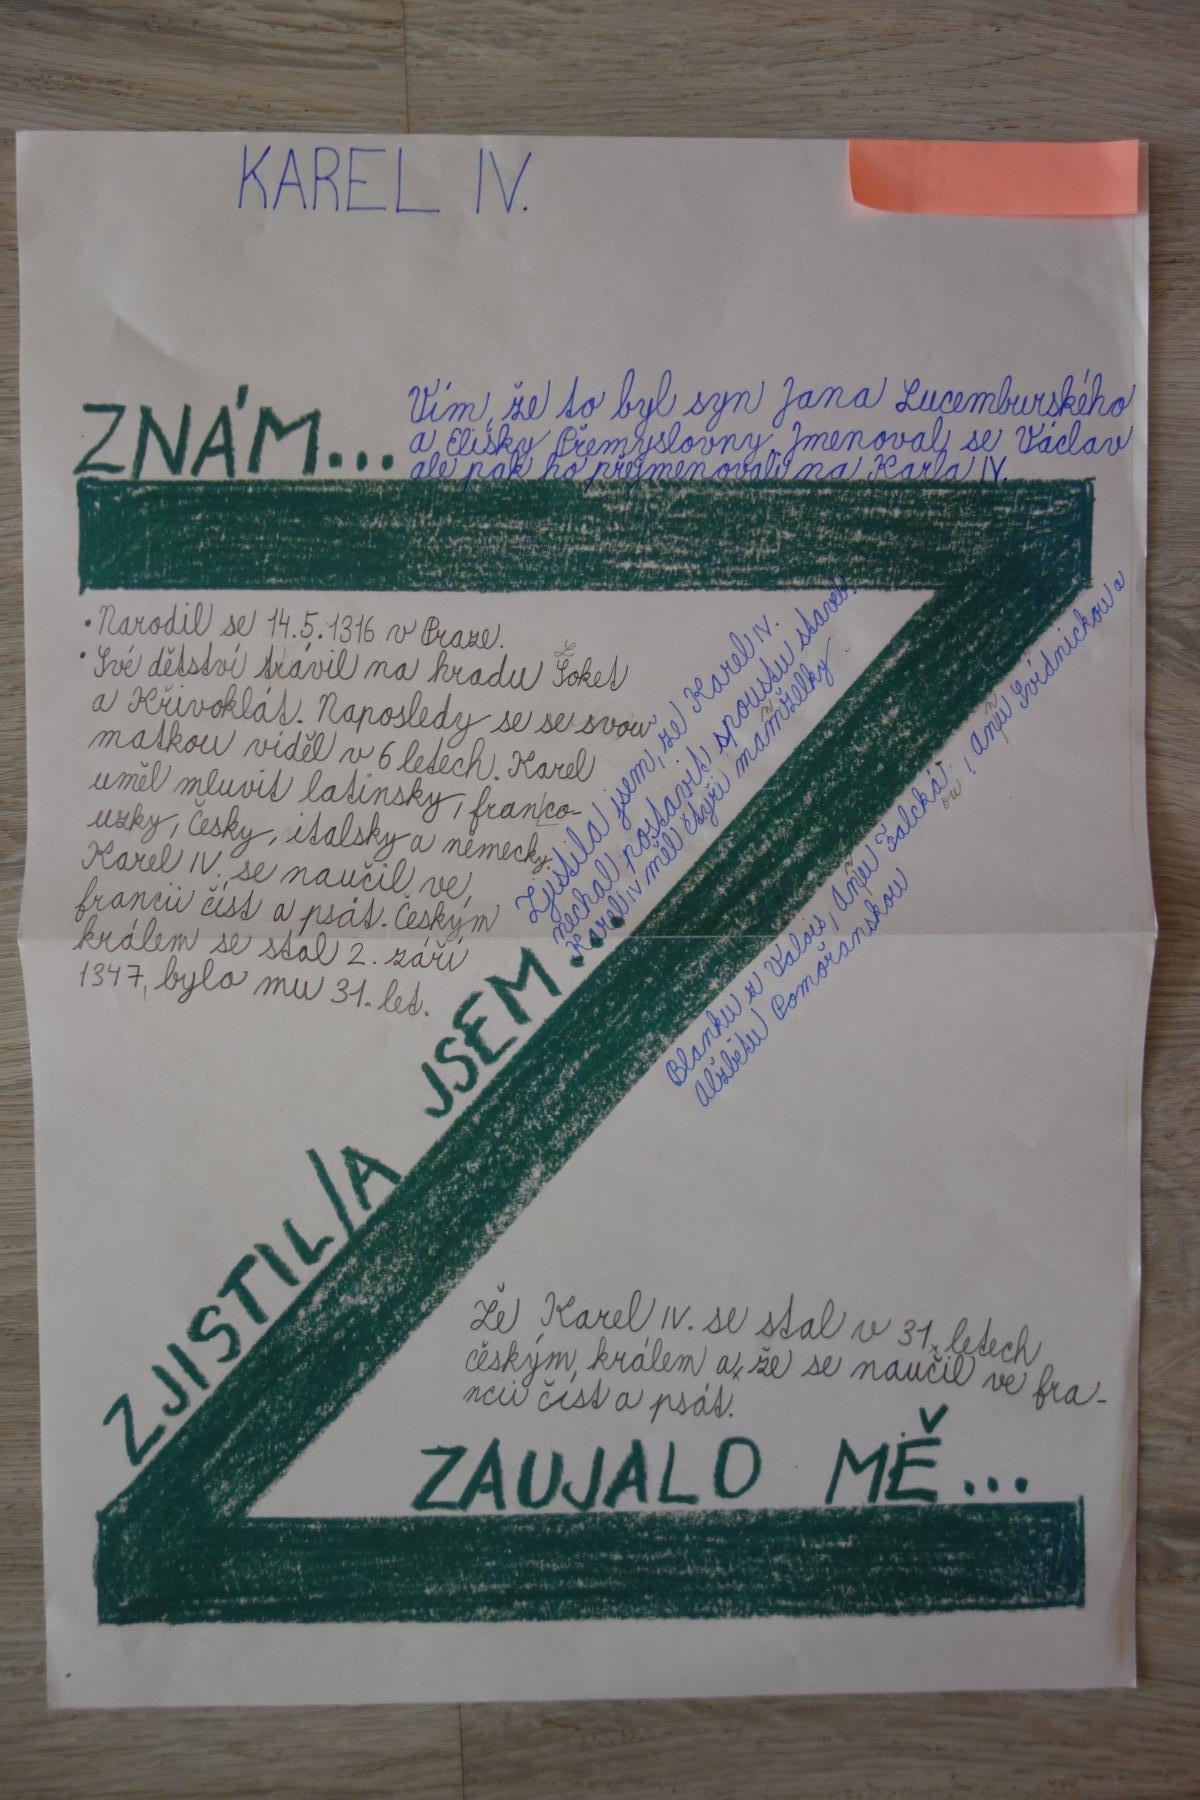 KAREL IV.
ZNÁM...
Vím, že to byl syn Jana Lucemburského
a Elišky Přemyslovny. Jmenoval se Václav
ale pak ho přejmenovali na Karla IV.
• Narodil se 14.5.1316 v Praze.
• Své dětství trávil na hradu Loket
a Křivoklát. Naposledy se se svou
matkou viděl v 6 letech. Karel
uměl mluvit latinsky, franco-
uzky, Česky, italsky a německy.
Karel IV. se naučil ve
francii číst a psát. Českým
králem se stal 2. září
1347, bylo mu 31. let.
ZJISTIL/A JSEM...
Zjistila jsem, že Karel IV.
nechal postavit spoustu staveb.
Karel IV měl čtyři manželky
Blanku z Valois, Aňu Falckou, Aňu Svídnickou a
Alžbětu Pomořanskou
Že Karel IV. se stal v 31. letech
českým králem a, že se naučil ve fra-
ncii číst a psát.
ZAUJALO MĚ...